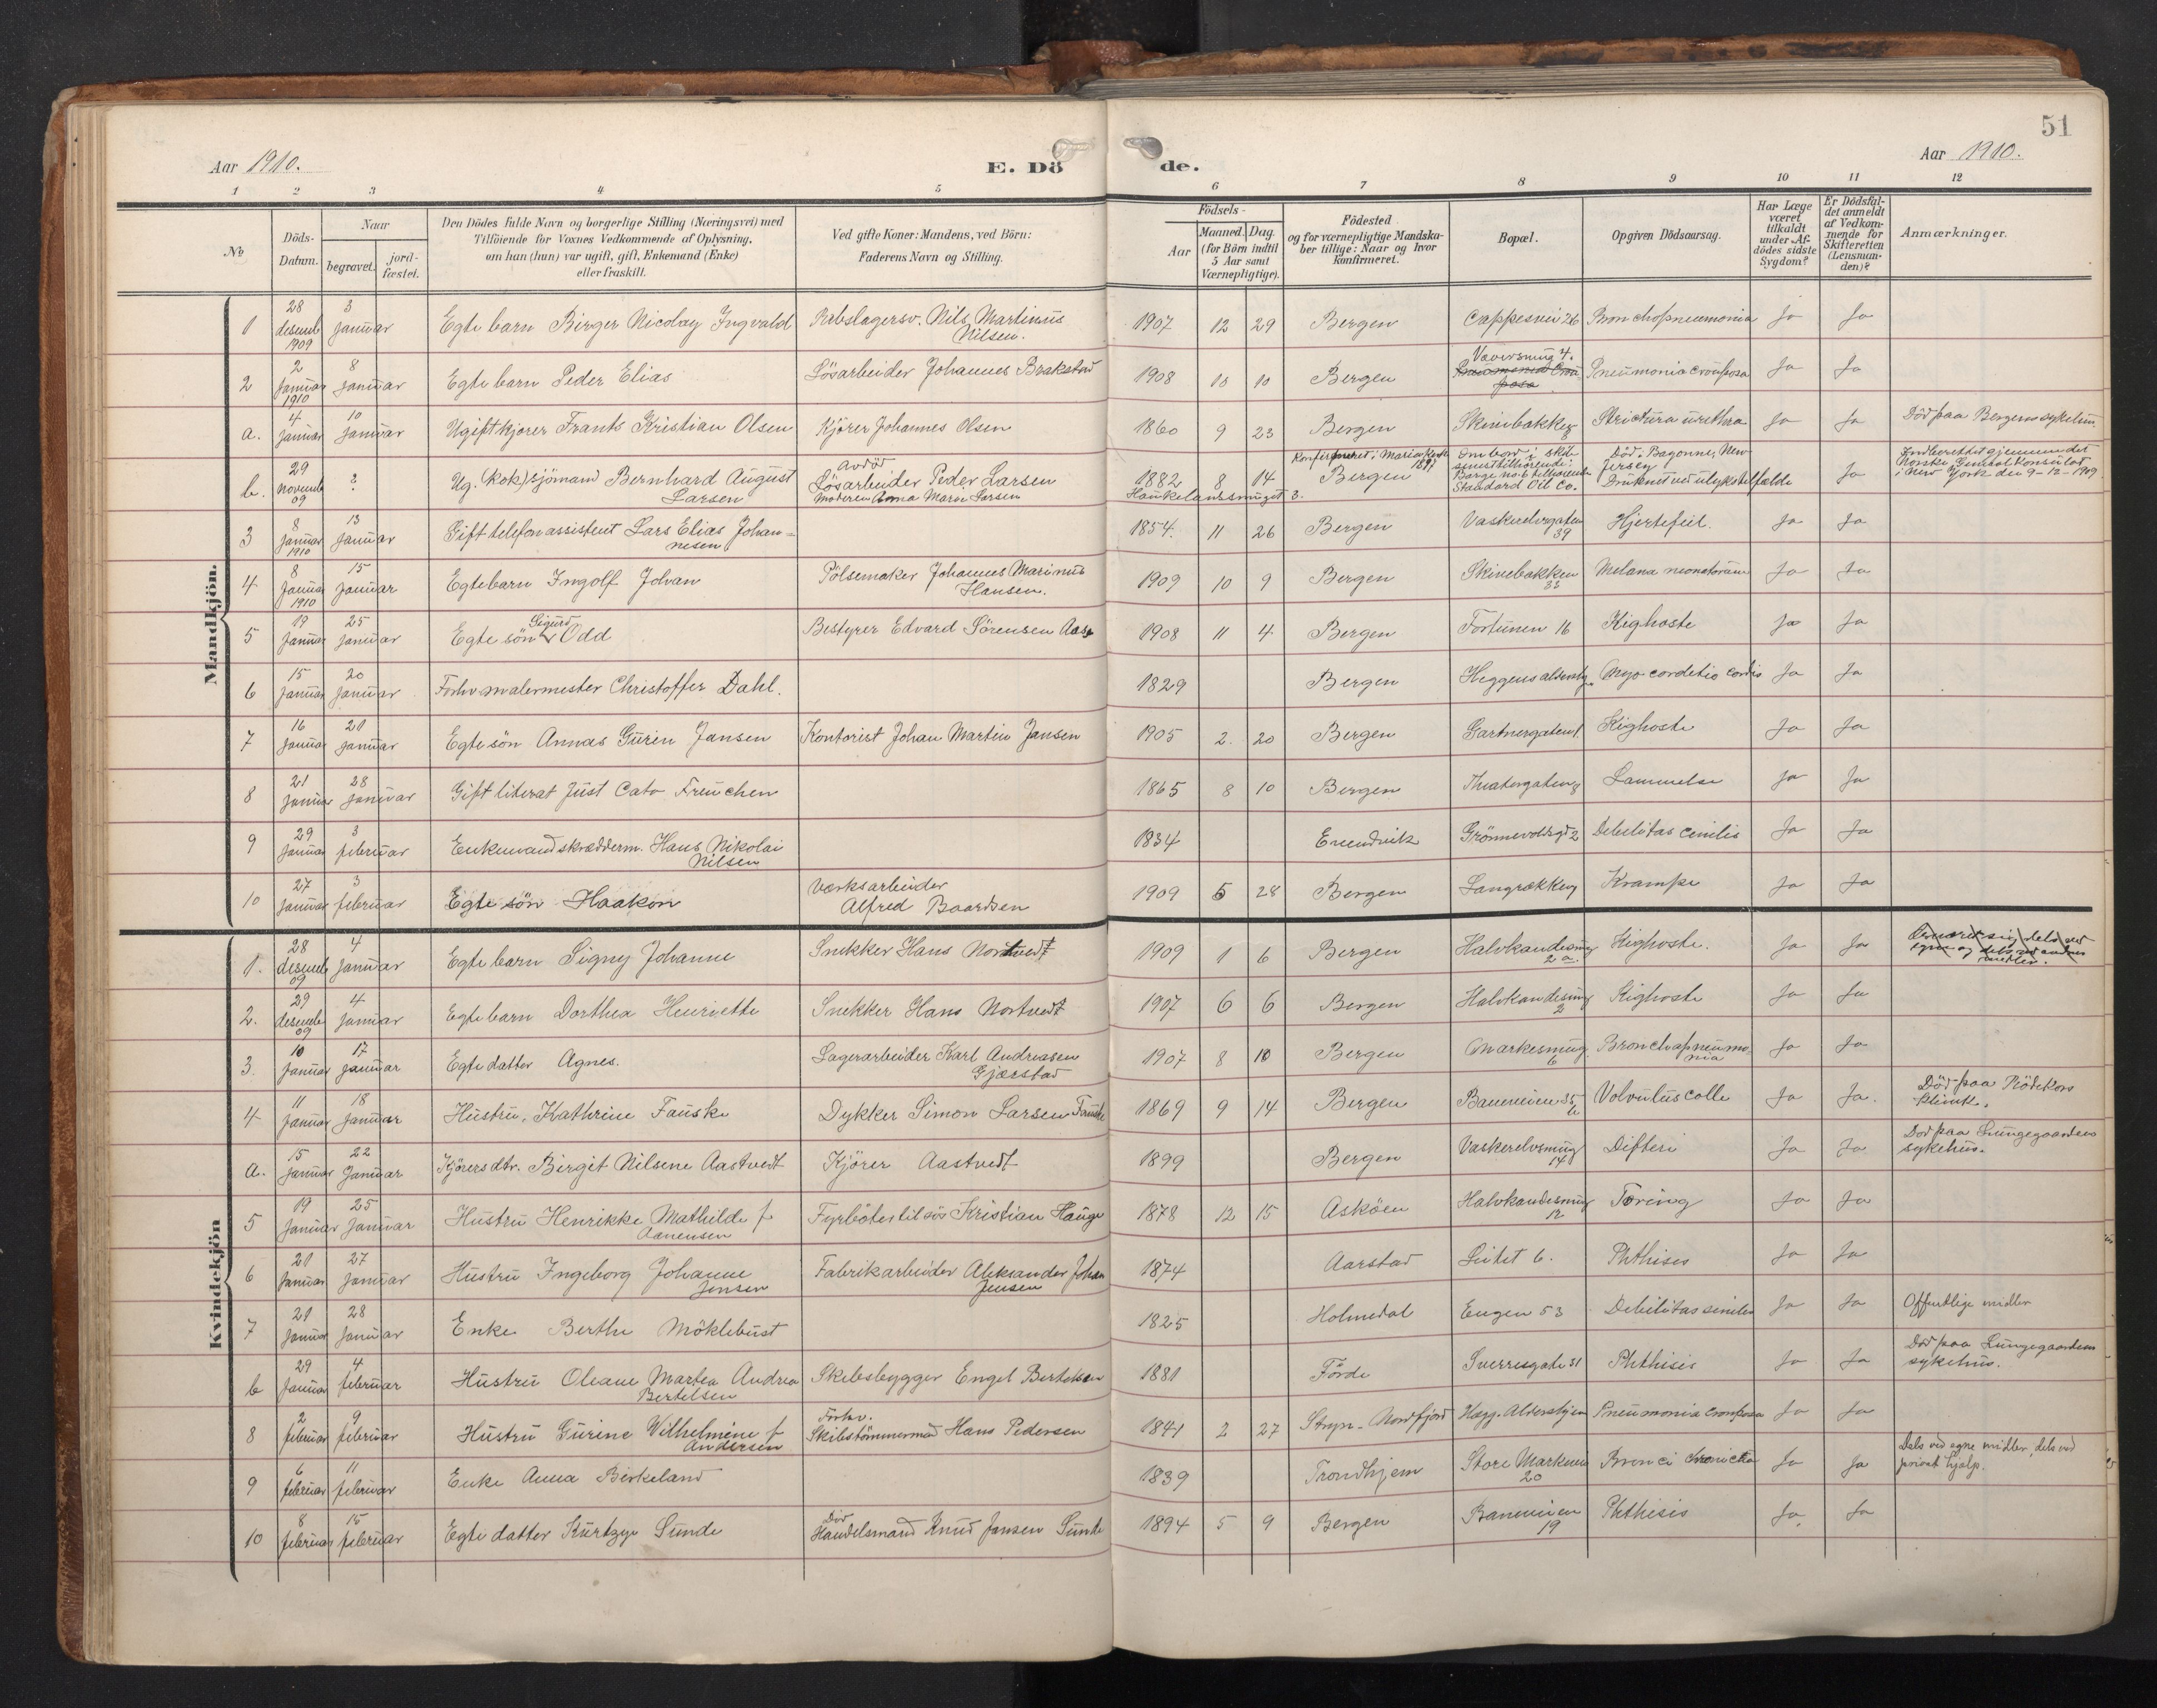 51
Aar 1910.
E. Dö
de.
Aar 1910.
1 2 3 4 5 6 7 8 9 10 11 12
No
Döds-Datum.
Naar
begravet.
jord-fæstet.
Den Dödes fulde Navn og borgerlige Stilling (Næringsvei) med
Tilföiende for Voxnes Vedkommende af Oplysning,
om han (hun) var ugift, gift, Enkemand (Enke)
eller fraskilt.
Ved gifte Koner: Mandens, ved Börn:
Faderens Navn og Stilling.
Födsels-
Aar
Maaned. Dag.
(for Börn indtil
5 Aar samt
Værnepligtige).
Födested
og for værnepligtige Mandska-
ber tillige: Naar og hvor
konfirmeret.
Bopæl.
Opgiven Dödsaarsag.
Har Læge
været
tilkaldt
under Af-
dödes sidste
Sygdom?
Er Dödsfal-
det anmeldt
af Vedkom-
mende for
Skifteretten
(Lensman-
den)?
Anmærkninger.
Mandkjön.
1 28 desemb 1909 3 januar Egte barn Birger Nicolay Ingvald Rebslagersv. Nils Martinus Nilsen. 1907 12 29 Bergen Cappesvei 26 Bronchopneumonia Ja Ja
2 2 januar 1910 8 januar Egte barn Peder Elias Lösarbeider Johannes Brakstad 1908 10 10 Bergen Væversmug 4. Pneumonia Crouposa Pneumonia crouposa Ja Ja
a. 4 januar 10 januar Ugift kjører Frants Kristian Olsen Kjører Johannes Olsen 1860 9 23 Bergen Skivebakken Strictura urethra Ja Ja Død paa Bergens sykehus
b. 29 novemb 09 ? Ug. (kok) sjömand Bernhard August Larsen Avdöd Lösarbeider Peder Larsen Moderen Anna Marie Larsen 1882 8 14 Haukelandssmuget 3. Konfirmeret i Mariæ 1897 Bergen Ombord i Barge no 6 tilhørende Standard Oil Co. Död i Bayonne, New Jersey Druknet ved ulykstilfælde Ja Indberettet gjennem det Norske Generalkonsulat i New York den 9-12-1909
3 8 januar 1910 13 januar Gift telefonassistent Lars Elias Johan=nesen 1854. 11 26 Bergen Vaskerelvgaten 39 Hjertefeil. Ja Ja
4 8 januar 1910 15 januar Egtebarn Ingolf Johan Pölsemaker Johannes Marinus Hansen. 1909 10 9 Bergen Skivebakken 33 Melana neonatorum Ja Ja
5 19 januar 25 januar Egte sön Sigurd Odd Bestyrer Edvard Sörensen Aase 1908 11 4 Bergen Fortunen 16 Kighoste Ja Ja
6 15 januar 20 januar Forhv malermester Christoffer Dahl. 1829 Bergen Ja Ja
7 16 januar 21 januar Egte sön Annas Gurin Jansen Kontorist Johan Martin Jansen 1905 2. 20 Bergen Gartnergaten 1. Kighoste Ja Ja
8 21 januar 28 januar Gift literat Just Cato Freuchen 1865 8 10 Bergen Theatergaten Lammelse Ja Ja
9 29 januar 3 februar Enkemand skrædderm. Hans Nikolai Nilsen 1834 Evendvik Grönnevoldsgd 2 Debilitas cenilis Ja Ja
10 27 januar 3 februar Egte sön Haakon Værksarbeider Alfred Baardsen 1909 5 28 Bergen Krampe Ja Ja
Kvindekjön
1. 28 desemb 09 4 januar Egte barn Signy Johanne Snekker Hans Nortvedt 1909 1 6 Bergen Halvkandesmug 2 a. Kighoste. Ja Ja
2. 29 desemb 09 4 januar Egte barn Dorthea Henriette Snekker Hans Nortvedt 1907 6 6 Bergen Halvkandesmug 2 Kighoste Ja Ja
3. 10 januar 17 januar Egte datter Agnes. Lagerarbeider Karl Andreasen Gjærstad 1907 8 10 Bergen Markesmug 6 Bronchopneumonia Ja Ja
4 11 januar 18 januar Hustru, Kathrine Fauske Dykker Simon Larsen Fauske 1869 9 14 Bergen Baneveien 35 b Volvulus colle Ja Ja. Död paa Rödekors klinik.
a. 15 januar 22 Januar Kjörers dtr. Birgit Nilsene Aastvedt Kjörer Aastvedt 1899 Bergen Vaskerelvsmug 14 Difteri Ja Ja Död paa Lungegaardens sykehus.
5 19 Januar 25 Januar Hustru Henrikke Mathilde f Aanensen Fyrböter tilsös Kristian Hauge 1878 12 15 Asköen Halvkandesmug 12 Tæring Ja Ja
6 21 Januar 27 Januar Hustru Ingeborg Johanne Jensen Fabrikarbeider Aleksander Johan Jensen 1874 Aarstad Leitet 6. Phthises Ja Ja
7 21 januar 28 Januar Enke Berthe Möklebust 1825 Holmedal Engen 53 Debilitas seniles Ja Ja Offentlige midler
b 29 Januar 4 februar Hustru Oleane Martea Andrea Bertelsen Skibsbygger Engel Bertelsen 1881 Förde Sverresgate 31 Phthisis Ja Ja Död paa Lungegaardens sykehus.
8 2 februar 9 februar Hustru Gurine Wilhelmine f Andersen Forhv. Skibstömmermd Hans Pedersen 1841 2 27 Stryn - Nordfjord Hegg. Alderhjem Pneumonia crouposa Ja Ja
9 6 februar 11 februar Enke Anna Birkeland 1839 Trondhjem Store Markevei 20 Ja Ja Dels ved egne midler, dels ved privat hjelp.
10 8 februar 15 februar Egte datter Kurtzye Sunde Död Handelsmand Knud Jansen Sunde 1894 5 9 Bergen Baneveien 19 Phthisis Ja. Ja